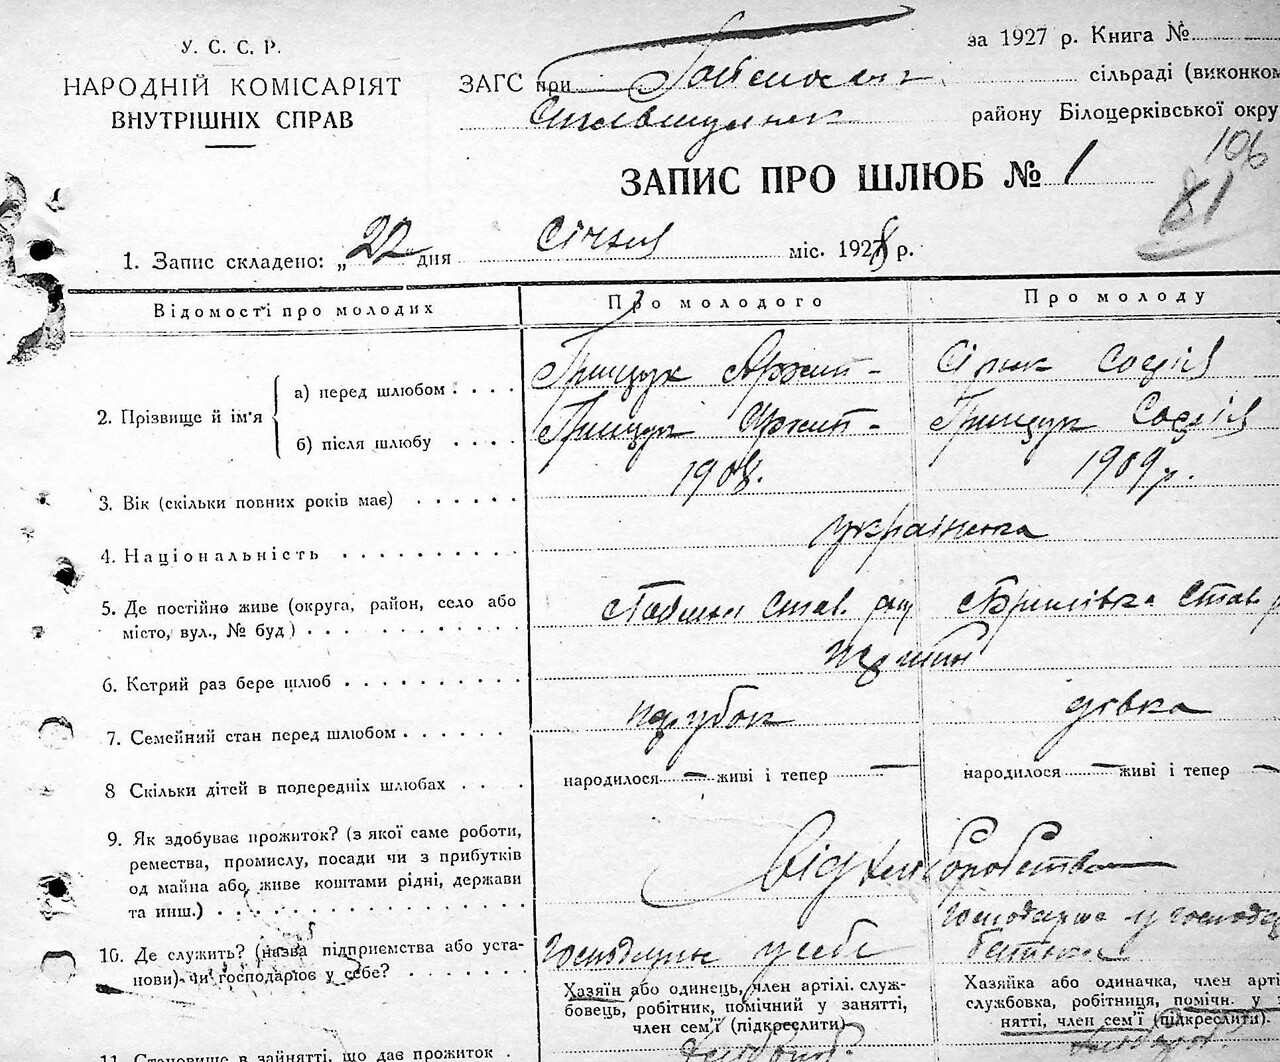 У. С. С. Р.
НАРОДНІЙ КОМІСАРІЯТ
ВНУТРІШНІХ СПРАВ
за 1927 р. Книга №
ЗАГС при сільраді (виконком
району Білоцерківської окру
106
81
ЗАПИС ПРО ШЛЮБ № 1
1. Запис складено: „22" дня січня міс. 1928 р.
Відомості про молодих Про молодого Про молоду
2. Прізвище й ім'я
а) перед шлюбом . . . . Грищук Архип - Сірик Софія
б) після шлюбу . . . . Грищук Архип - Грищук Софія
3. Вік (скільки повних років має) . . . . . . 1908. 1909 р.
4. Національність . . . . . . . . . . українська
5. Де постійно живе (округа, район, село або
місто, вул., № буд) . . . . . . . . . . Став. Став.
6. Котрий раз бере шлюб . . . . . . . . . .
7. Семейний стан перед шлюбом . . . . . . парубок дівка
8 Скільки дітей в попередніх шлюбах . . . . народилося — живі і тепер — народилося — живі і тепер —
9. Як здобуває прожиток? (з якої саме роботи,
ремества, промислу, посади чи з прибутків
од майна або живе коштами рідні, держави
та инш.) . . . . . . . . . . . . . . . Від хліборобства
10. Де служить? (назва підприємства або уста-
нови) чи господарює у себе? . . . . . . . у себе у батька
Хазяїн або одинець, член артілі. служ-
бовець, робітник, помічний у занятті,
член сем'ї (підкреслити)
Хазяйка або одиначка, член арті
службовка, робітниця, помічн. у з
нятті, член сем'ї (підкреслити).
11. Становище в зайнятті, що дає прожиток .